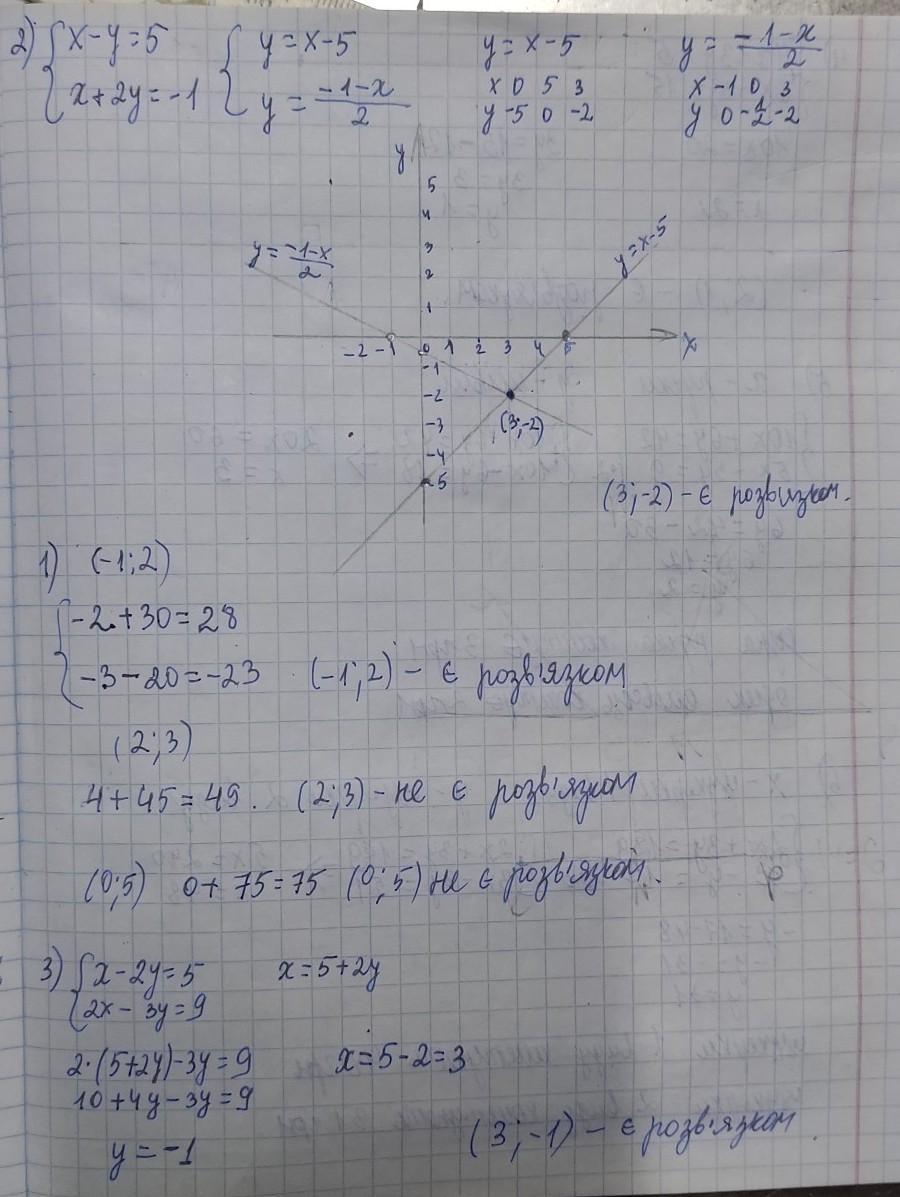 2) { x-y=5 { y=x-5 y=x-5 y=\frac{-1-x}{2}
x+2y=-1 y=\frac{-1-x}{2} x 0 5 3 x -1 0 3
y -5 0 -2 y 0 -\frac{1}{2} -2
y
5
4
3
2
1
y=\frac{-1-x}{2} y=x-5
-2 -1 0 1 2 3 4 5 x
-1
-2
-3
-4
-5
(3;-2)
(3;-2) - є розв'язком.
1) (-1;2)
{ -2+30=28
-3-20=-23 (-1;2) - є розв'язком
(2;3)
4+45=49. (2;3) - не є розв'язком
(0;5) 0+75=75 (0;5) не є розв'язком.
3) { x-2y=5 x=5+2y
2x-3y=9
2·(5+2y)-3y=9 x=5-2=3
10+4y-3y=9
y=-1 (3;-1) - є розв'язком